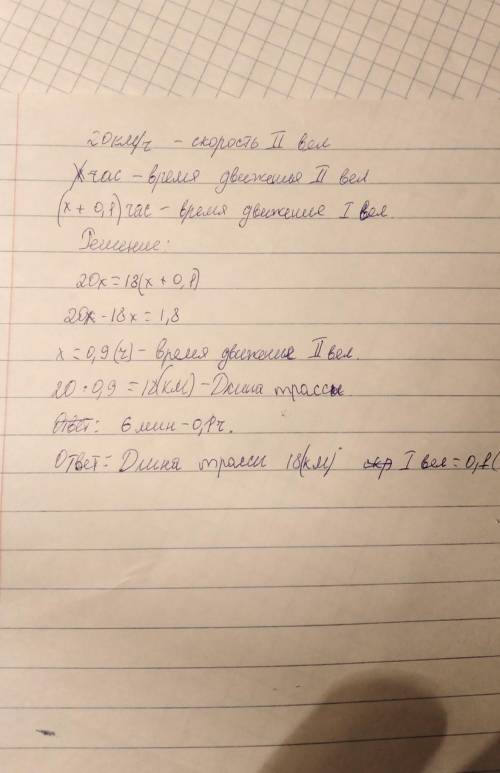 20км/ч - скорость II вел
X час - время движенья II вел
(x + 0,1) час - время движение I вел.
Решение:
20x = 18(x + 0,1)
20x - 18x = 1,8
x = 0,9 (ч) - время движение II вел.
20 · 0,9 = 18(км) - Длина трассы.
Ответ: 6 мин - 0,1ч.
Ответ = Длина трассы 18(км) I вел = 0,1(